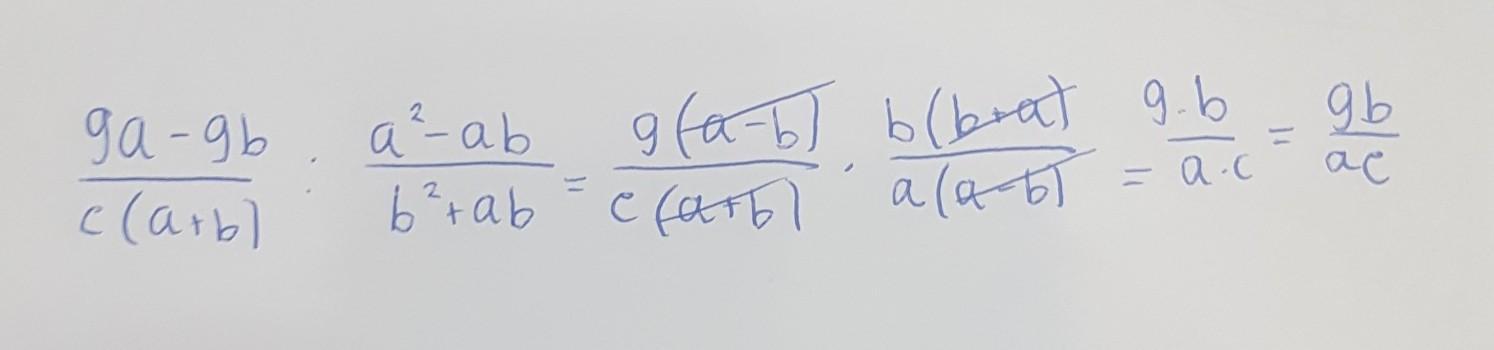 \frac{9a-9b}{c(a+b)} : \frac{a^2-ab}{b^2+ab} = \frac{9(a-b)}{c(a+b)} \cdot \frac{b(b+a)}{a(a-b)} = \frac{9 \cdot b}{a \cdot c} = \frac{9b}{ac}